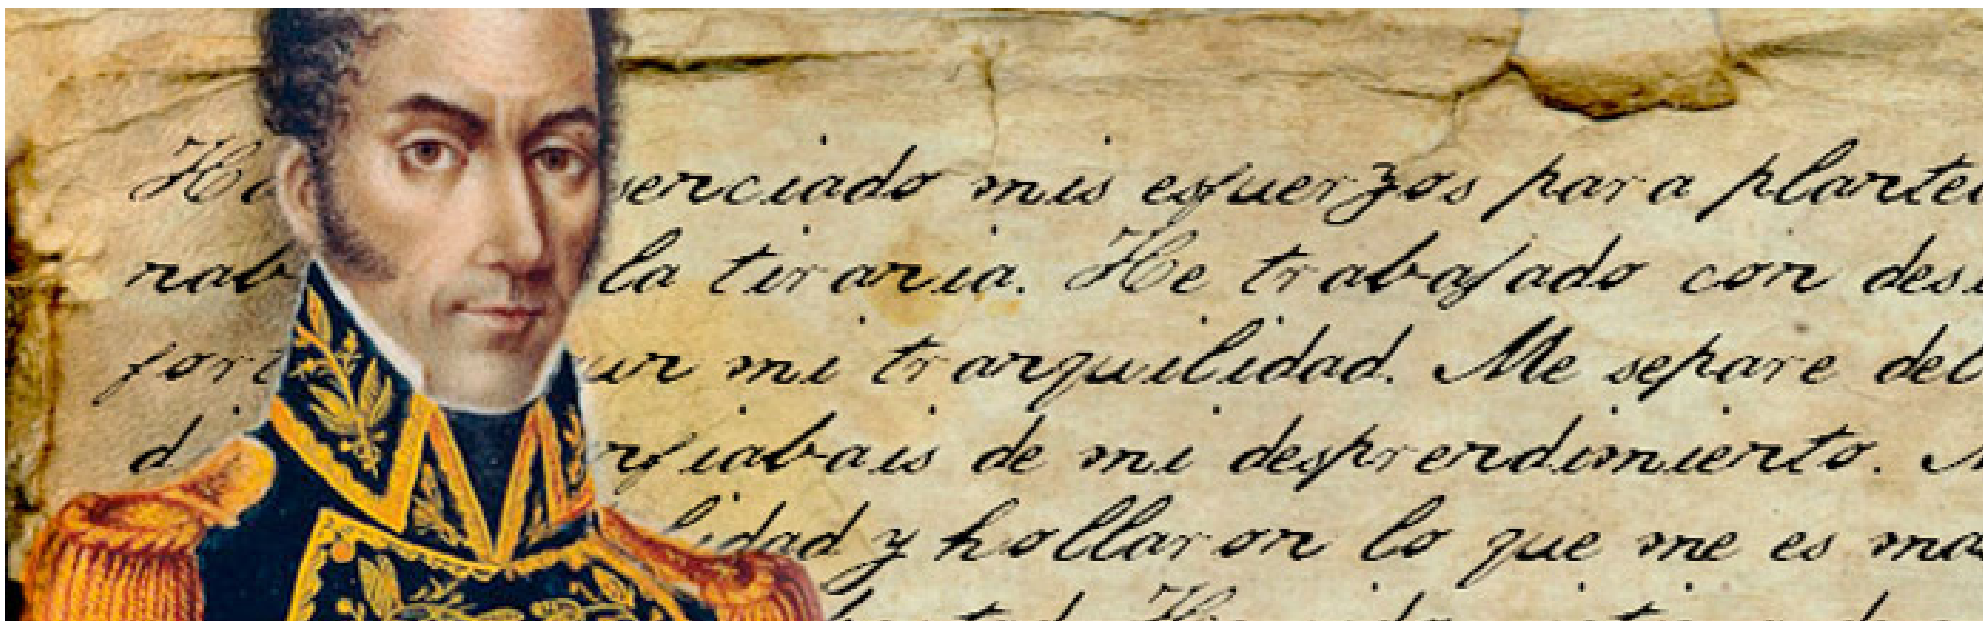 senciado mis esfuerzos para plante
nab la tirania. He trabajado con des
for un mi tranquilidad. Me separe del
d nfiabais de mi desprendimiento. M
lidad y hollaron lo que me es ma